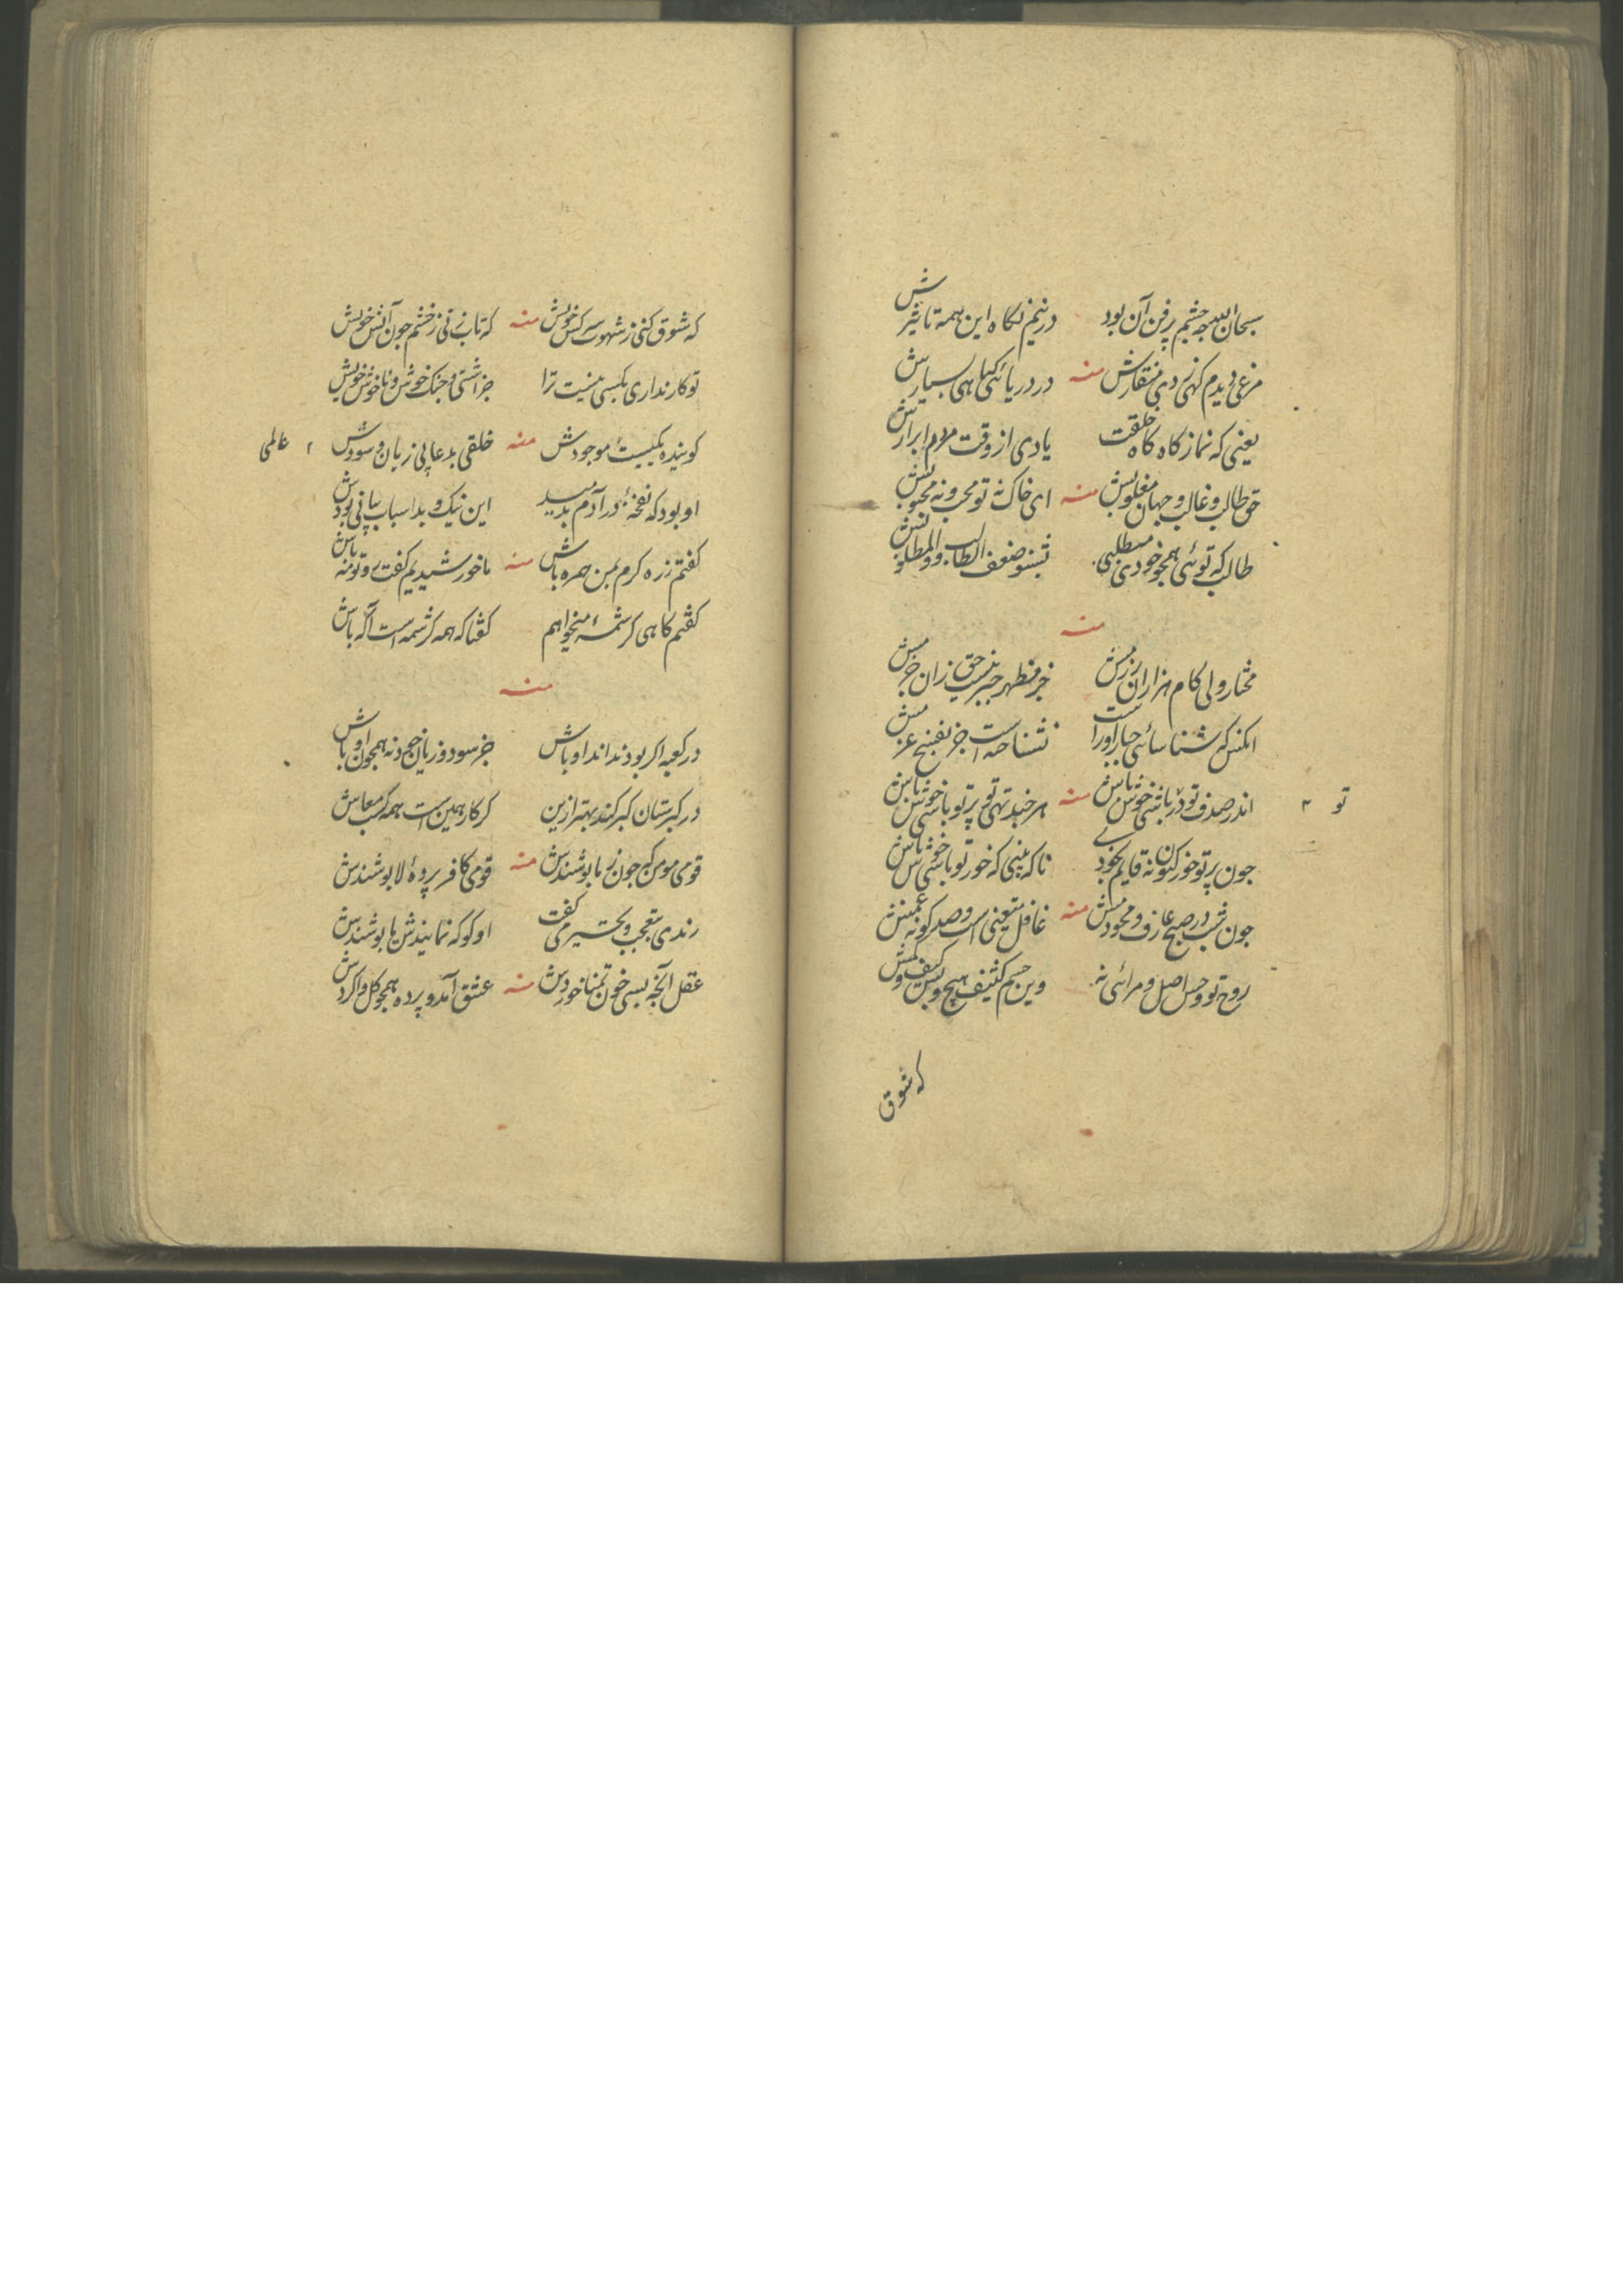 سبحان الله چه چشم پرفن آن بود در نیم نگاه این همه تاثیرش
مرغی دیدم که زدی منقارش منه در دریائی گیاهی بسیارش
یعنی که نماز گاه گاه خلقت یادی از وقت مردم ابرارش
حق طالب و غالب و جهان مغلوبش منه ای خاک نه تو محب و نه محبوبش
طالب که توئی همچو خودی میطلبی بشنو ضعف الطالب والمطلوبش
منه
مختار ولی کام هزاران رزمش جز مظهر جبر نیست حق زان جزمش
آنکس که شناسائی جبار او راست نشناخته است جز بفسخ عزمش
اندر صدف تو در باشی خوش باش منه هر چند تهی تو پر تو باشی خوش باش
چون پرتو خور کنون نه قایم بخودی تا که بینی که خور تو باشی خوش باش
تو ۲
چون شب در صبح عارف و محو دمش منه غافل متعینی است و صد گونه غمش
روح تو و حس اصل و مرائی نه وین جسم کثیف هیچ و بس کیف و کمش
که شوق
که شوق کنی ز شهوت سرکش خویش منه که تاب نی ز خشم چون آتش خویش
تو کار نداری بکسی نیست ترا جز آشتی و جنگ خوش و ناخوش خویش
گوینده یکیست موجودش منه خلقی بدعا پی زیان و سودش ۲ عالمی
او بود که نفخهٔ در آدم بدمید این نیک و بد اسباب بیانی بودش
گفتم ز ره کرم بمن همره باش منه ما خورشیدیم گفت رو تو مه باش
گفتم گاهی کرشمهٔ میخواهم گفتا که همه کرشمه است آگه باش
منه
در کعبه اگر بود نداند اوباش جز سود و زیان خود نه همچون او باش
در گبرستان گبر کند بهتر ازین گر کار همین است همه کسب معاش
قومی مومن که چون ز ما پوشندش منه قومی کافر پردهٔ لا پوشندش
رندی بتعجب و تحسر می گفت او کو که نمایندش یا پوشندش
عقل آنچه بسی خون تمنا خوردش منه عشق آمد و پرده همچو گل واکردش